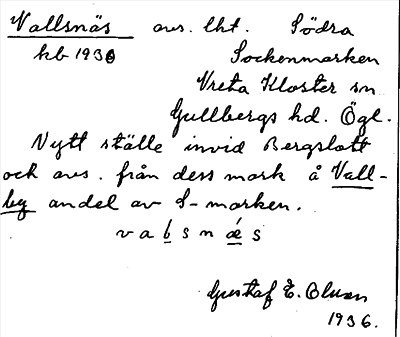 Vallsnäs avs. lht. Södra
kb 1930 Sockenmarken
Vreta Kloster sn
Gullbergs hd. Ögl.
Nytt ställe invid Bergslott
och avs. från dess mark å Vall-
by andel av S-marken.
v a b s n ǽ s
Gustaf E.
1936.